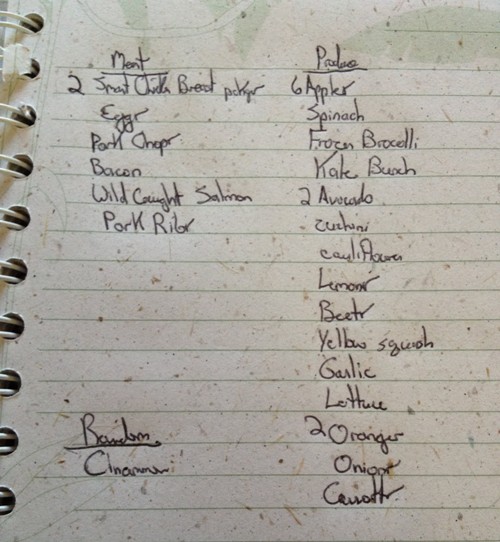 Meat
2 Smart Chicken Breast packges
Eggs
Pork Chops
Bacon
Wild Caught Salmon
Pork Ribs
Random
Cinammon
Produce
6 Apples
Spinach
Frozen Brocolli
Kale Bunch
2 Avocado
zuchini
cauliflower
Lemons
Beets
Yellow squash
Garlic
Lettuce
2 Oranges
Onions
Carrotts